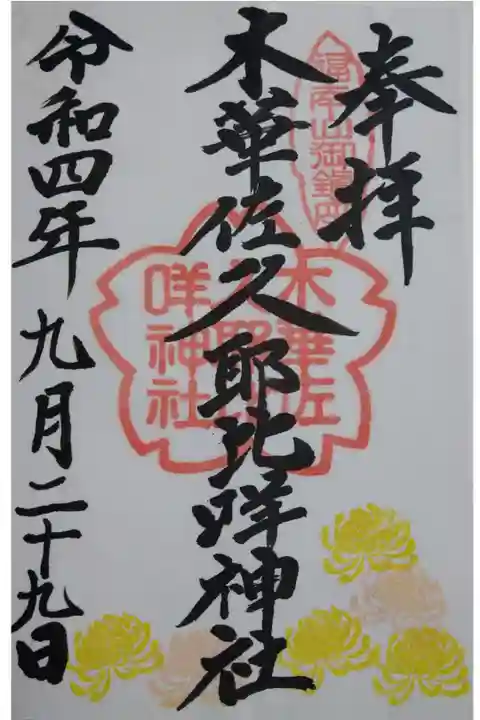 奉拝
木華佐久耶比咩神社
令和四年 九月二十九日
木華佐
久耶比
咩神社